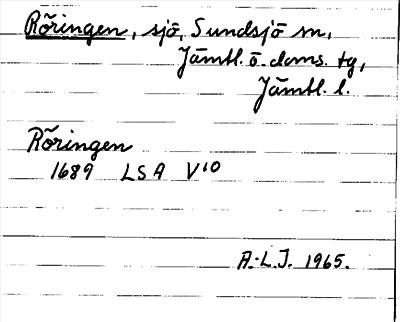 Röringen, sjö, Sundsjö sn,
Jämtl. ö. doms. tg,
Jämtl. l.
Röringen
1689 LSA V10
A.-L.J. 1965.